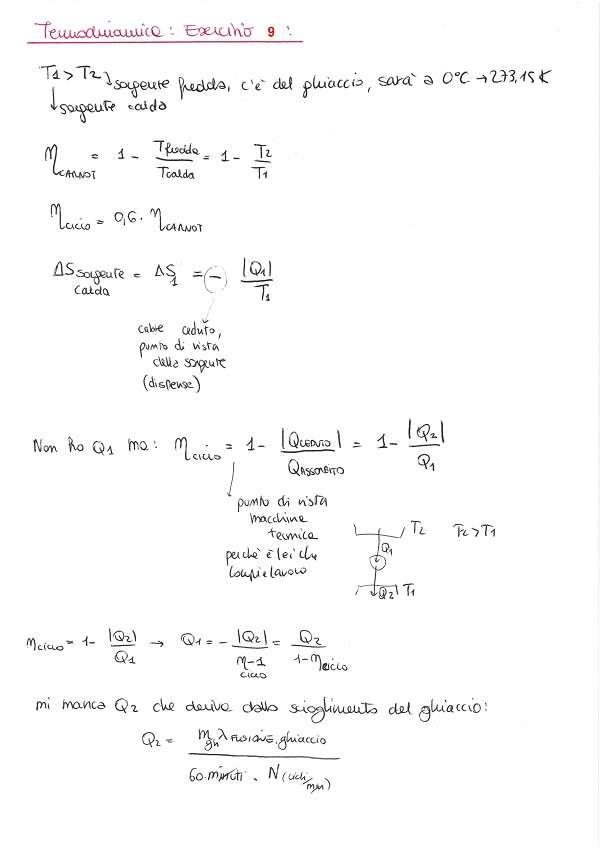 Termodinamica: Esercizio 9 :
T1 > T2 sorgente fredda, c'è del ghiaccio, sarà a 0°C → 273,15K
sorgente calda
η CARNOT = 1 - Tfredda/Tcalda = 1 - T2/T1
η ciclo = 0,6 · η CARNOT
ΔS sorgente calda = ΔS1 = - |Q1|/T1
calore ceduto,
punto di vista
della sorgente
(dispense)
Non ho Q1 ma: η ciclo = 1 - |Q CEDUTO|/Q ASSORBITO = 1 - |Q2|/Q1
punto di vista
macchina
termica
perchè è lei che
compie lavoro
T2 T2 > T1
Q1
|Q2| T1
η ciclo = 1 - |Q2|/Q1 → Q1 = - |Q2|/(η ciclo - 1) = Q2/(1 - η ciclo)
mi manca Q2 che deriva dallo scioglimento del ghiaccio:
Q2 = m gh λ FUSIONE, ghiaccio / 60 minuti · N (cicli/min)